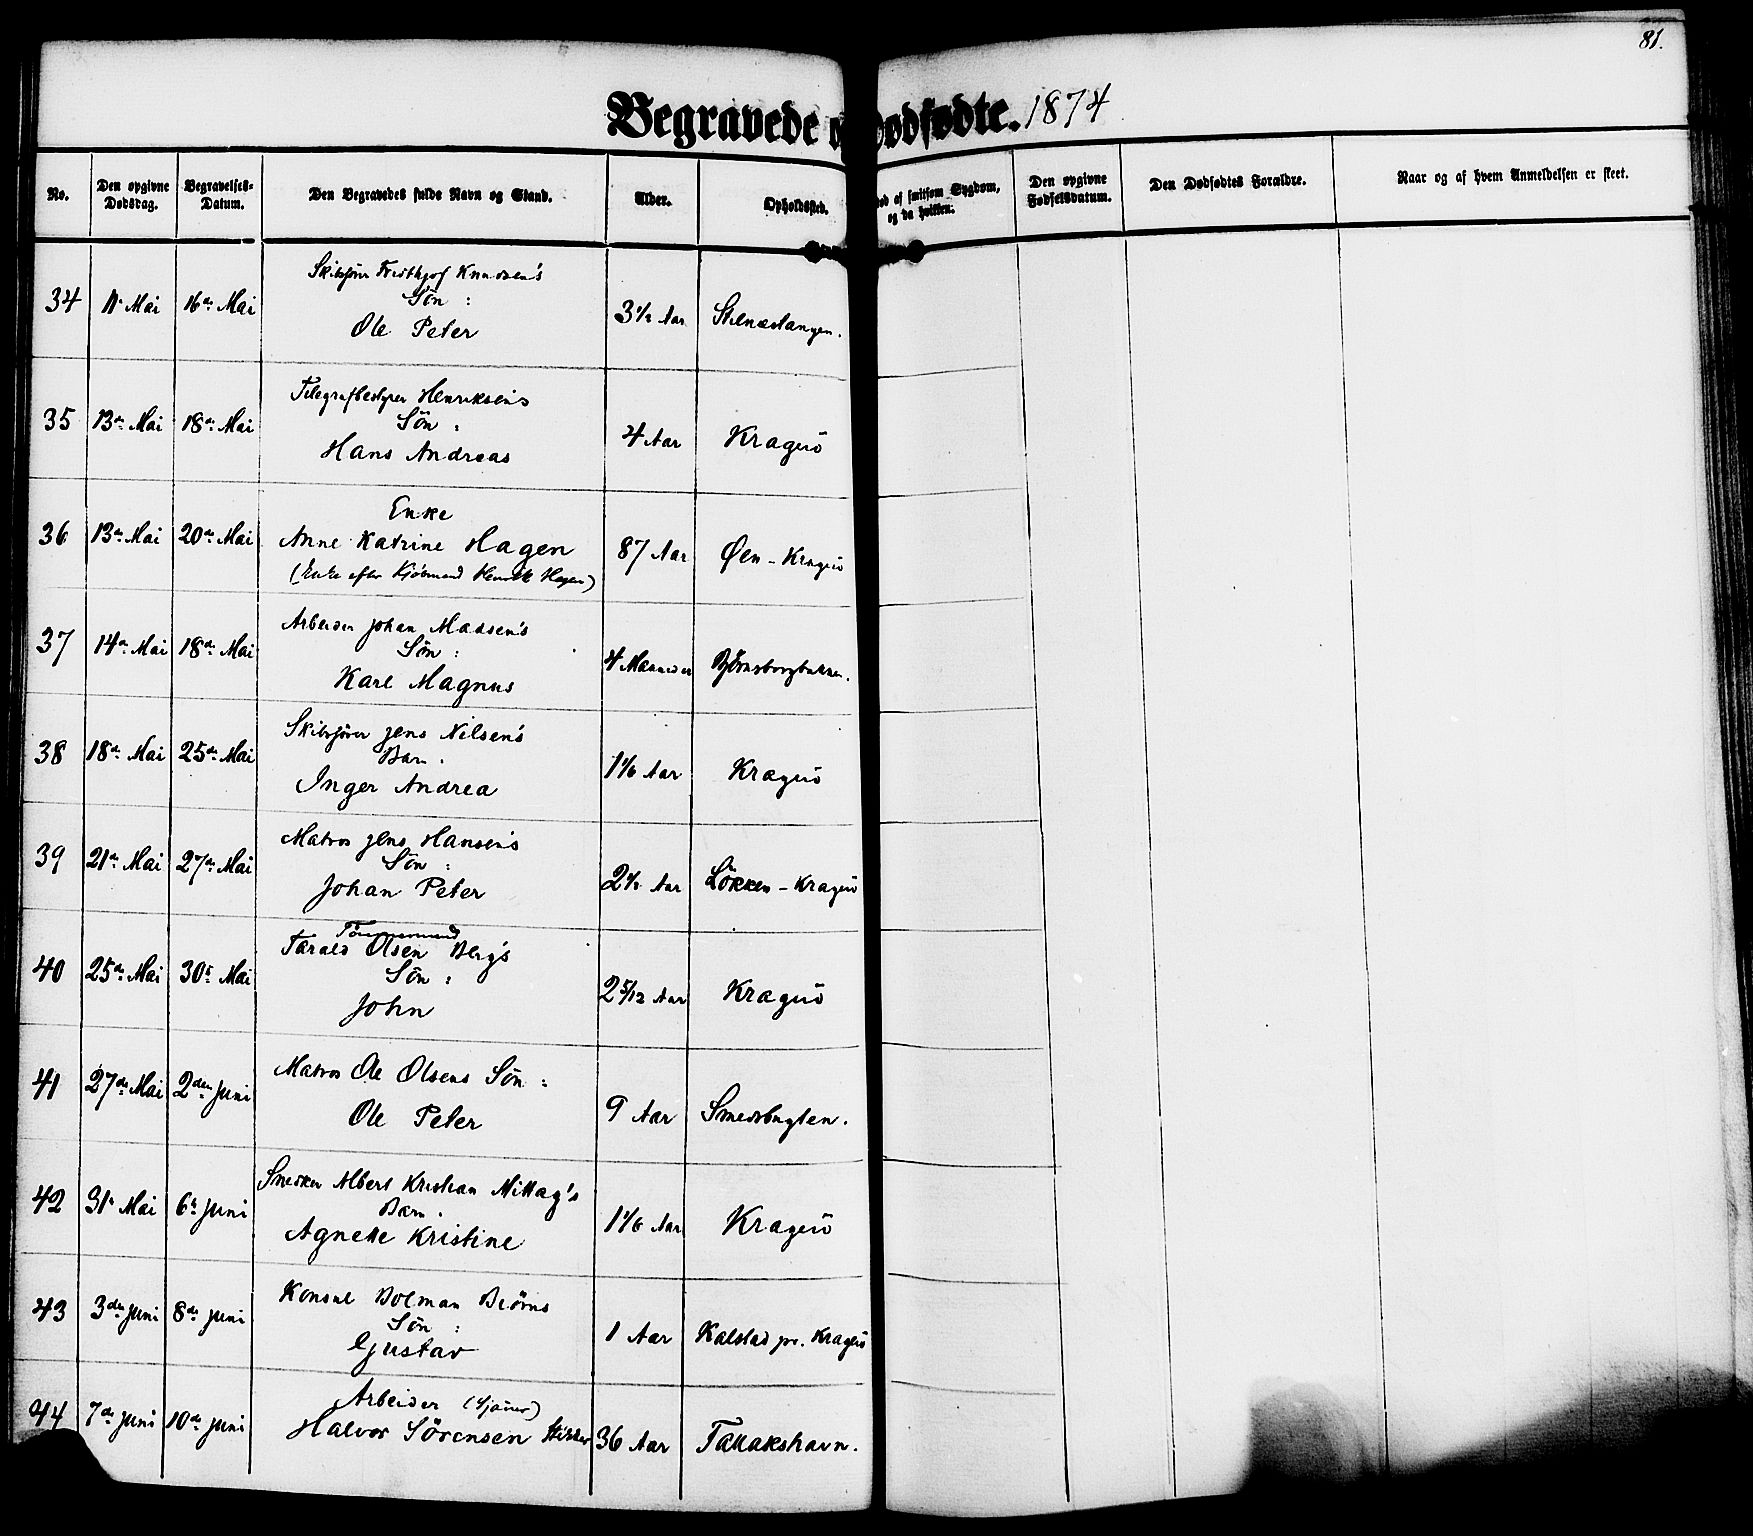 81.
Begravede og Dødfødte. 1874
No.
Den opgivne Dødsdag.
Begravelses-Datum.
Den Begravedes fulde Navn og Stand.
Alder.
Opholdssted.
død af smitsom Sygdom, og da hvilken.
Den opgivne Fødselsdatum.
Den Dødfødtes Forældre.
Naar og af hvem Anmeldelsen er skeet.
34 11. Mai 16de Mai
Skibsfører Fridthjof Knudsen's
Søn :
Ole Peter
3 1/2 Aar
35 13de Mai 18de Mai
Telegrafbestyrer Henriksen's
Søn :
Hans Andreas
4 Aar Kragerö
36 13de Mai 20de Mai
Enke
Anne Katrine Hagen
(Enke efter Kjöbmand Henrik Hagen)
87 Aar Øen - Kragerö
37 14de Mai 18de Mai
Arbeider Johan Madsen's
Søn :
Karl Magnus
4 Maaneder Björnsborgbakken.
38 18de Mai 25de Mai
Skibsfører Jens Nilsen's
Barn.
Inger Andrea
1 1/6 Aar Kragerö
39 21de Mai 27de Mai
Matros Jens Hansen's
Søn :
Johan Peter
2 1/2 Aar Lökken - Kragerö
40 25de Mai 30te Mai
Tömmermand
Tarald Olsen Berg's
Søn :
John
2 5/12 Aar Kragerö
41 27de Mai 2den Juni
Matros Ole Olsens Søn :
Ole Peter
9 Aar Smedsbugten.
42 31. Mai 6te Juni
Snedker Albert Kristian Mittag's
Barn.
Agnethe Kristine
1 1/6 Aar Kragerö
43 3die Juni 8de Juni
Konsul Bolman Biörns
Søn :
Gustav
1 Aar Kalstad pr. Kragerö
44 7de Juni 10de Juni
Arbeider (Sjöuer)
Halvor Sörensen
36 Aar Tallakshavn.